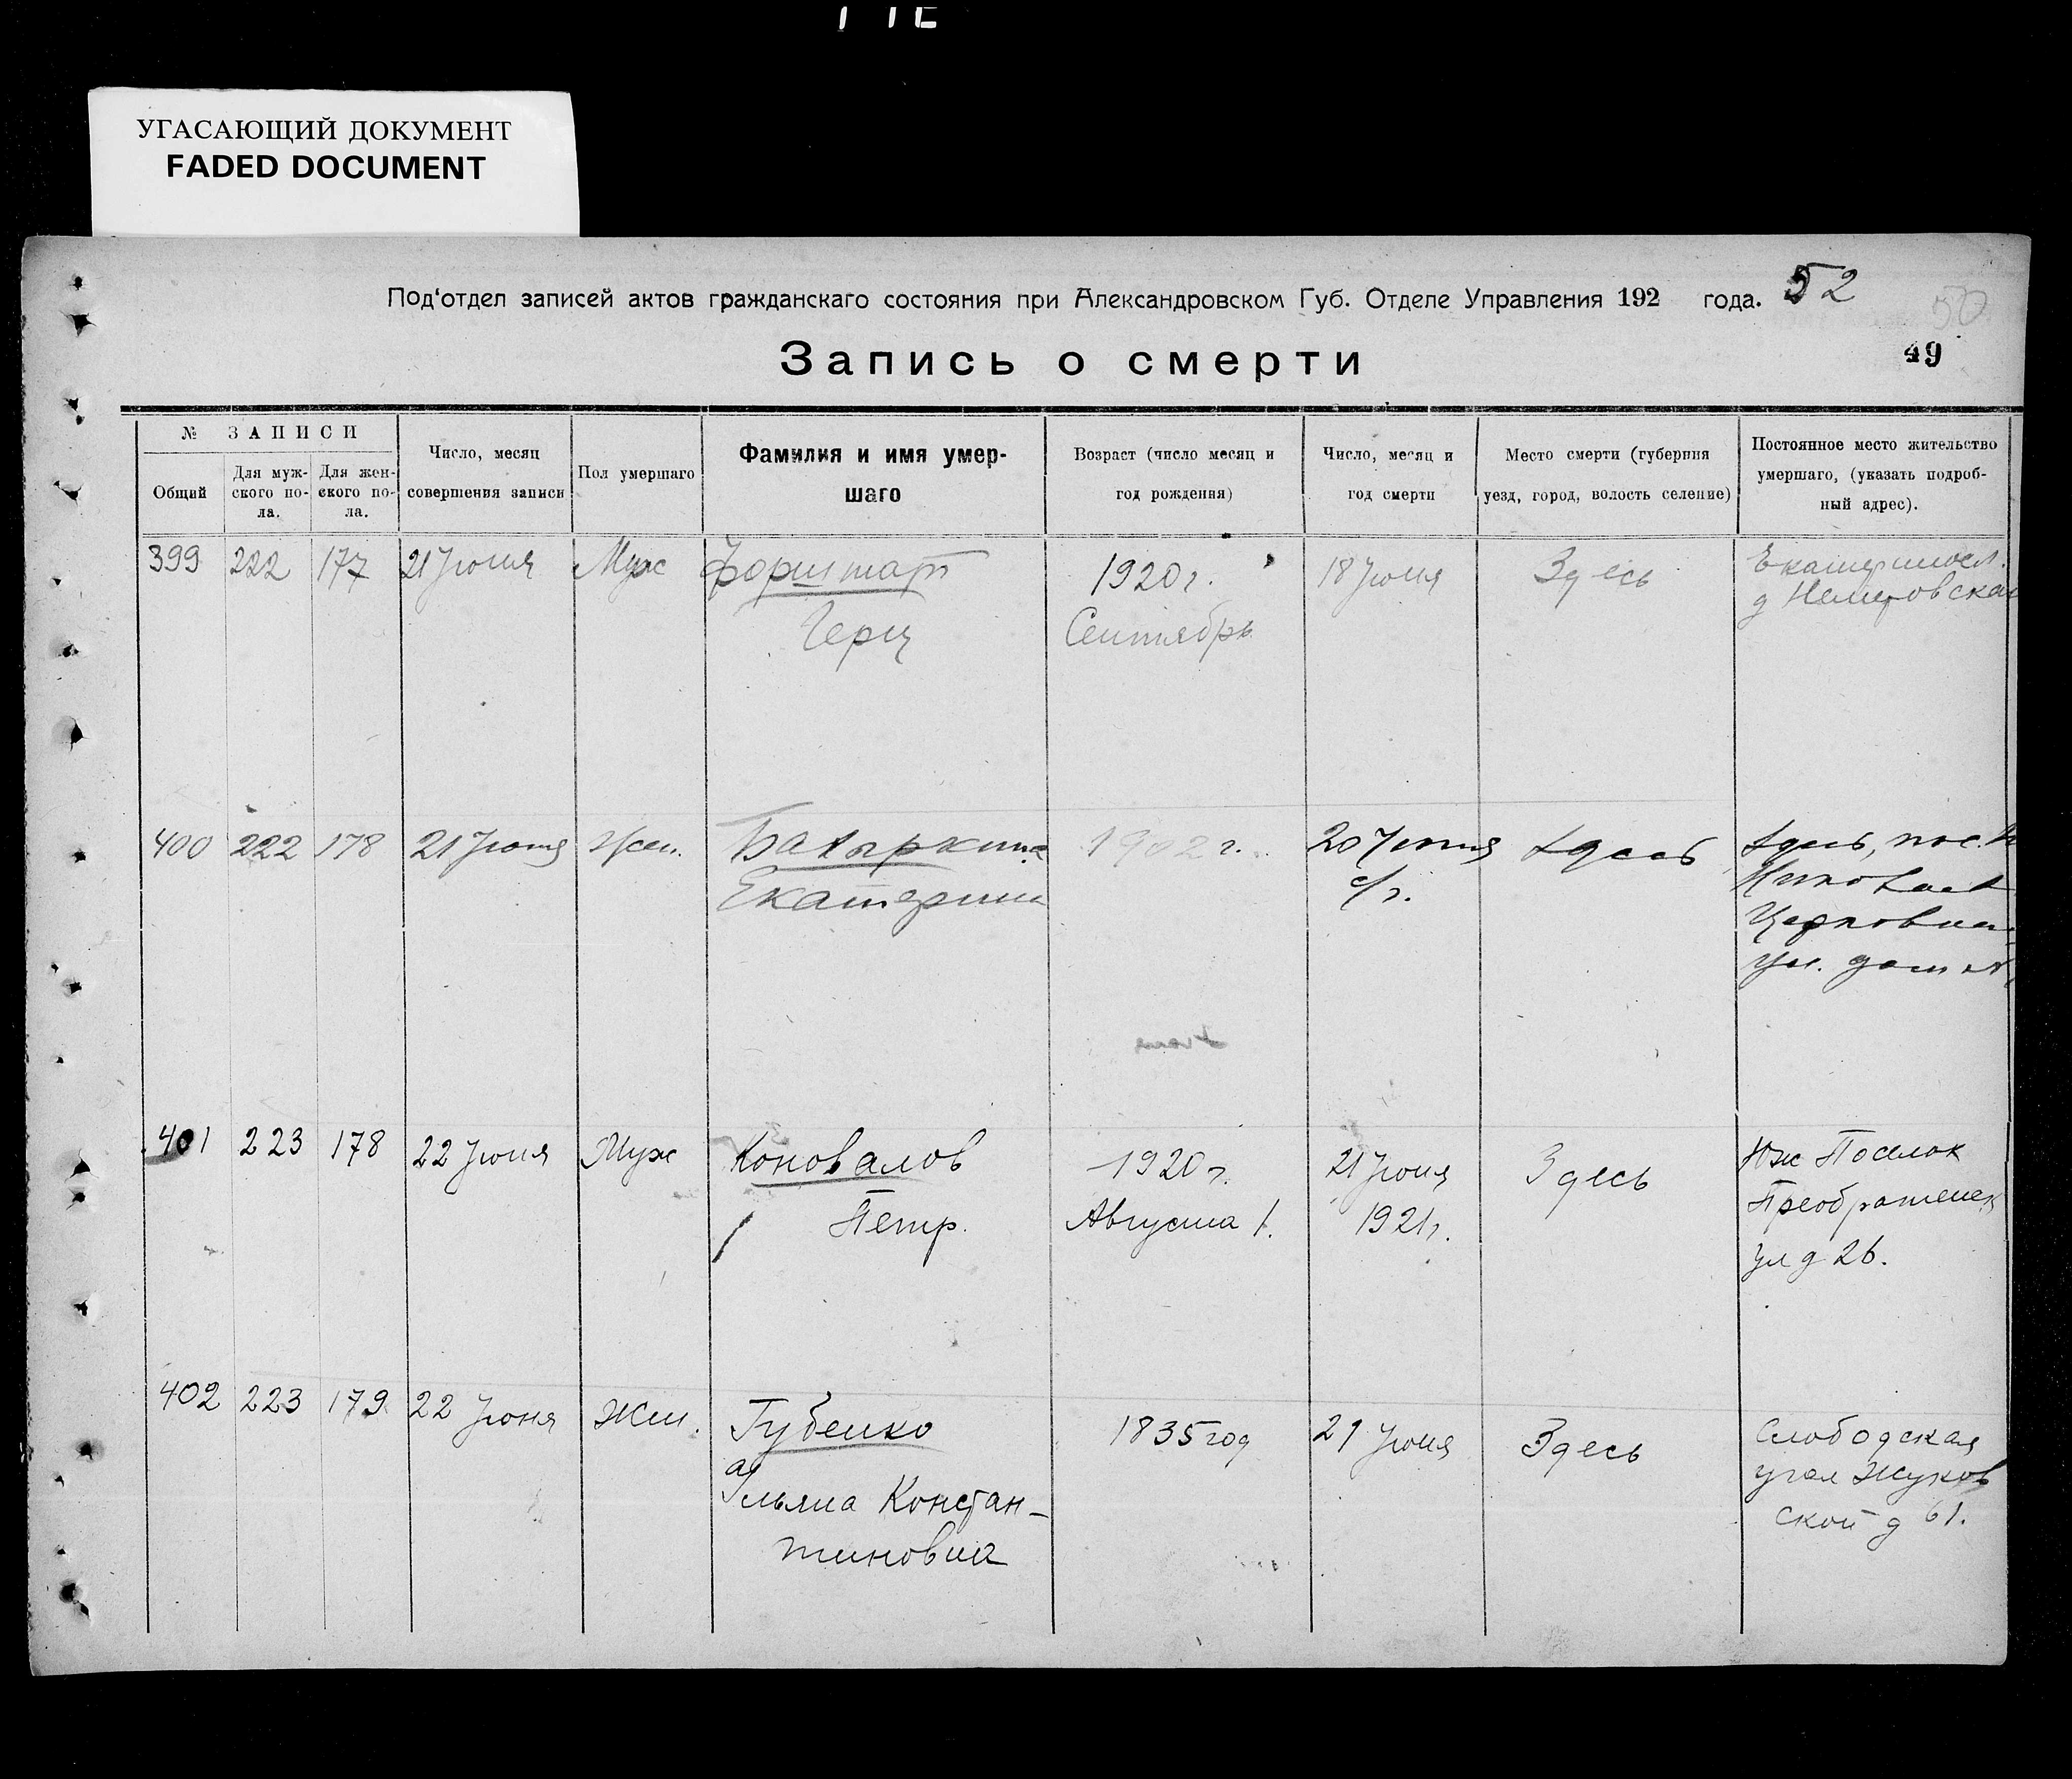 УГАСАЮЩИЙ ДОКУМЕНТ
FADED DOCUMENT
Под'отдел записей актов гражданскаго состояния при Александровском Губ. Отделе Управления 192 года. 52
50
Запись о смерти
49
№ ЗАПИСИ
Общий
Для муж-
ского по-
ла.
Для жен-
ского по-
ла.
Число, месяц
совершения записи
Пол умершаго
Фамилия и имя умер-
шаго
Возраст (число месяц и
год рождения)
Число, месяц и
год смерти
Место смерти (губерния
уезд, город, волость селение)
Постоянное место жительство
умершаго, (указать подроб-
ный адрес).
399 222 177 21 Июня Муж Форштат 1920 г. 18 Июня Здесь Екатериносл.
Герц Сентябрь
400 222 178 21 Июня Жен. Батыркина 1902 г. 20 Июня Здесь Здесь, пос.
Екатерина с/г.
Церковная
ул. дом №
401 223 178 22 Июня Муж Коновалов 1920 г. 21 Июня Здесь Юж Поселок
Петр. Августа 1. 1921 г. Преображенск
ул д 26.
402 223 179 22 Июня Жен. Губенко 1835 год 21 Июня Здесь Слободская
угол Жуков
ской д 61.
Ульяна Констан-
тиновна